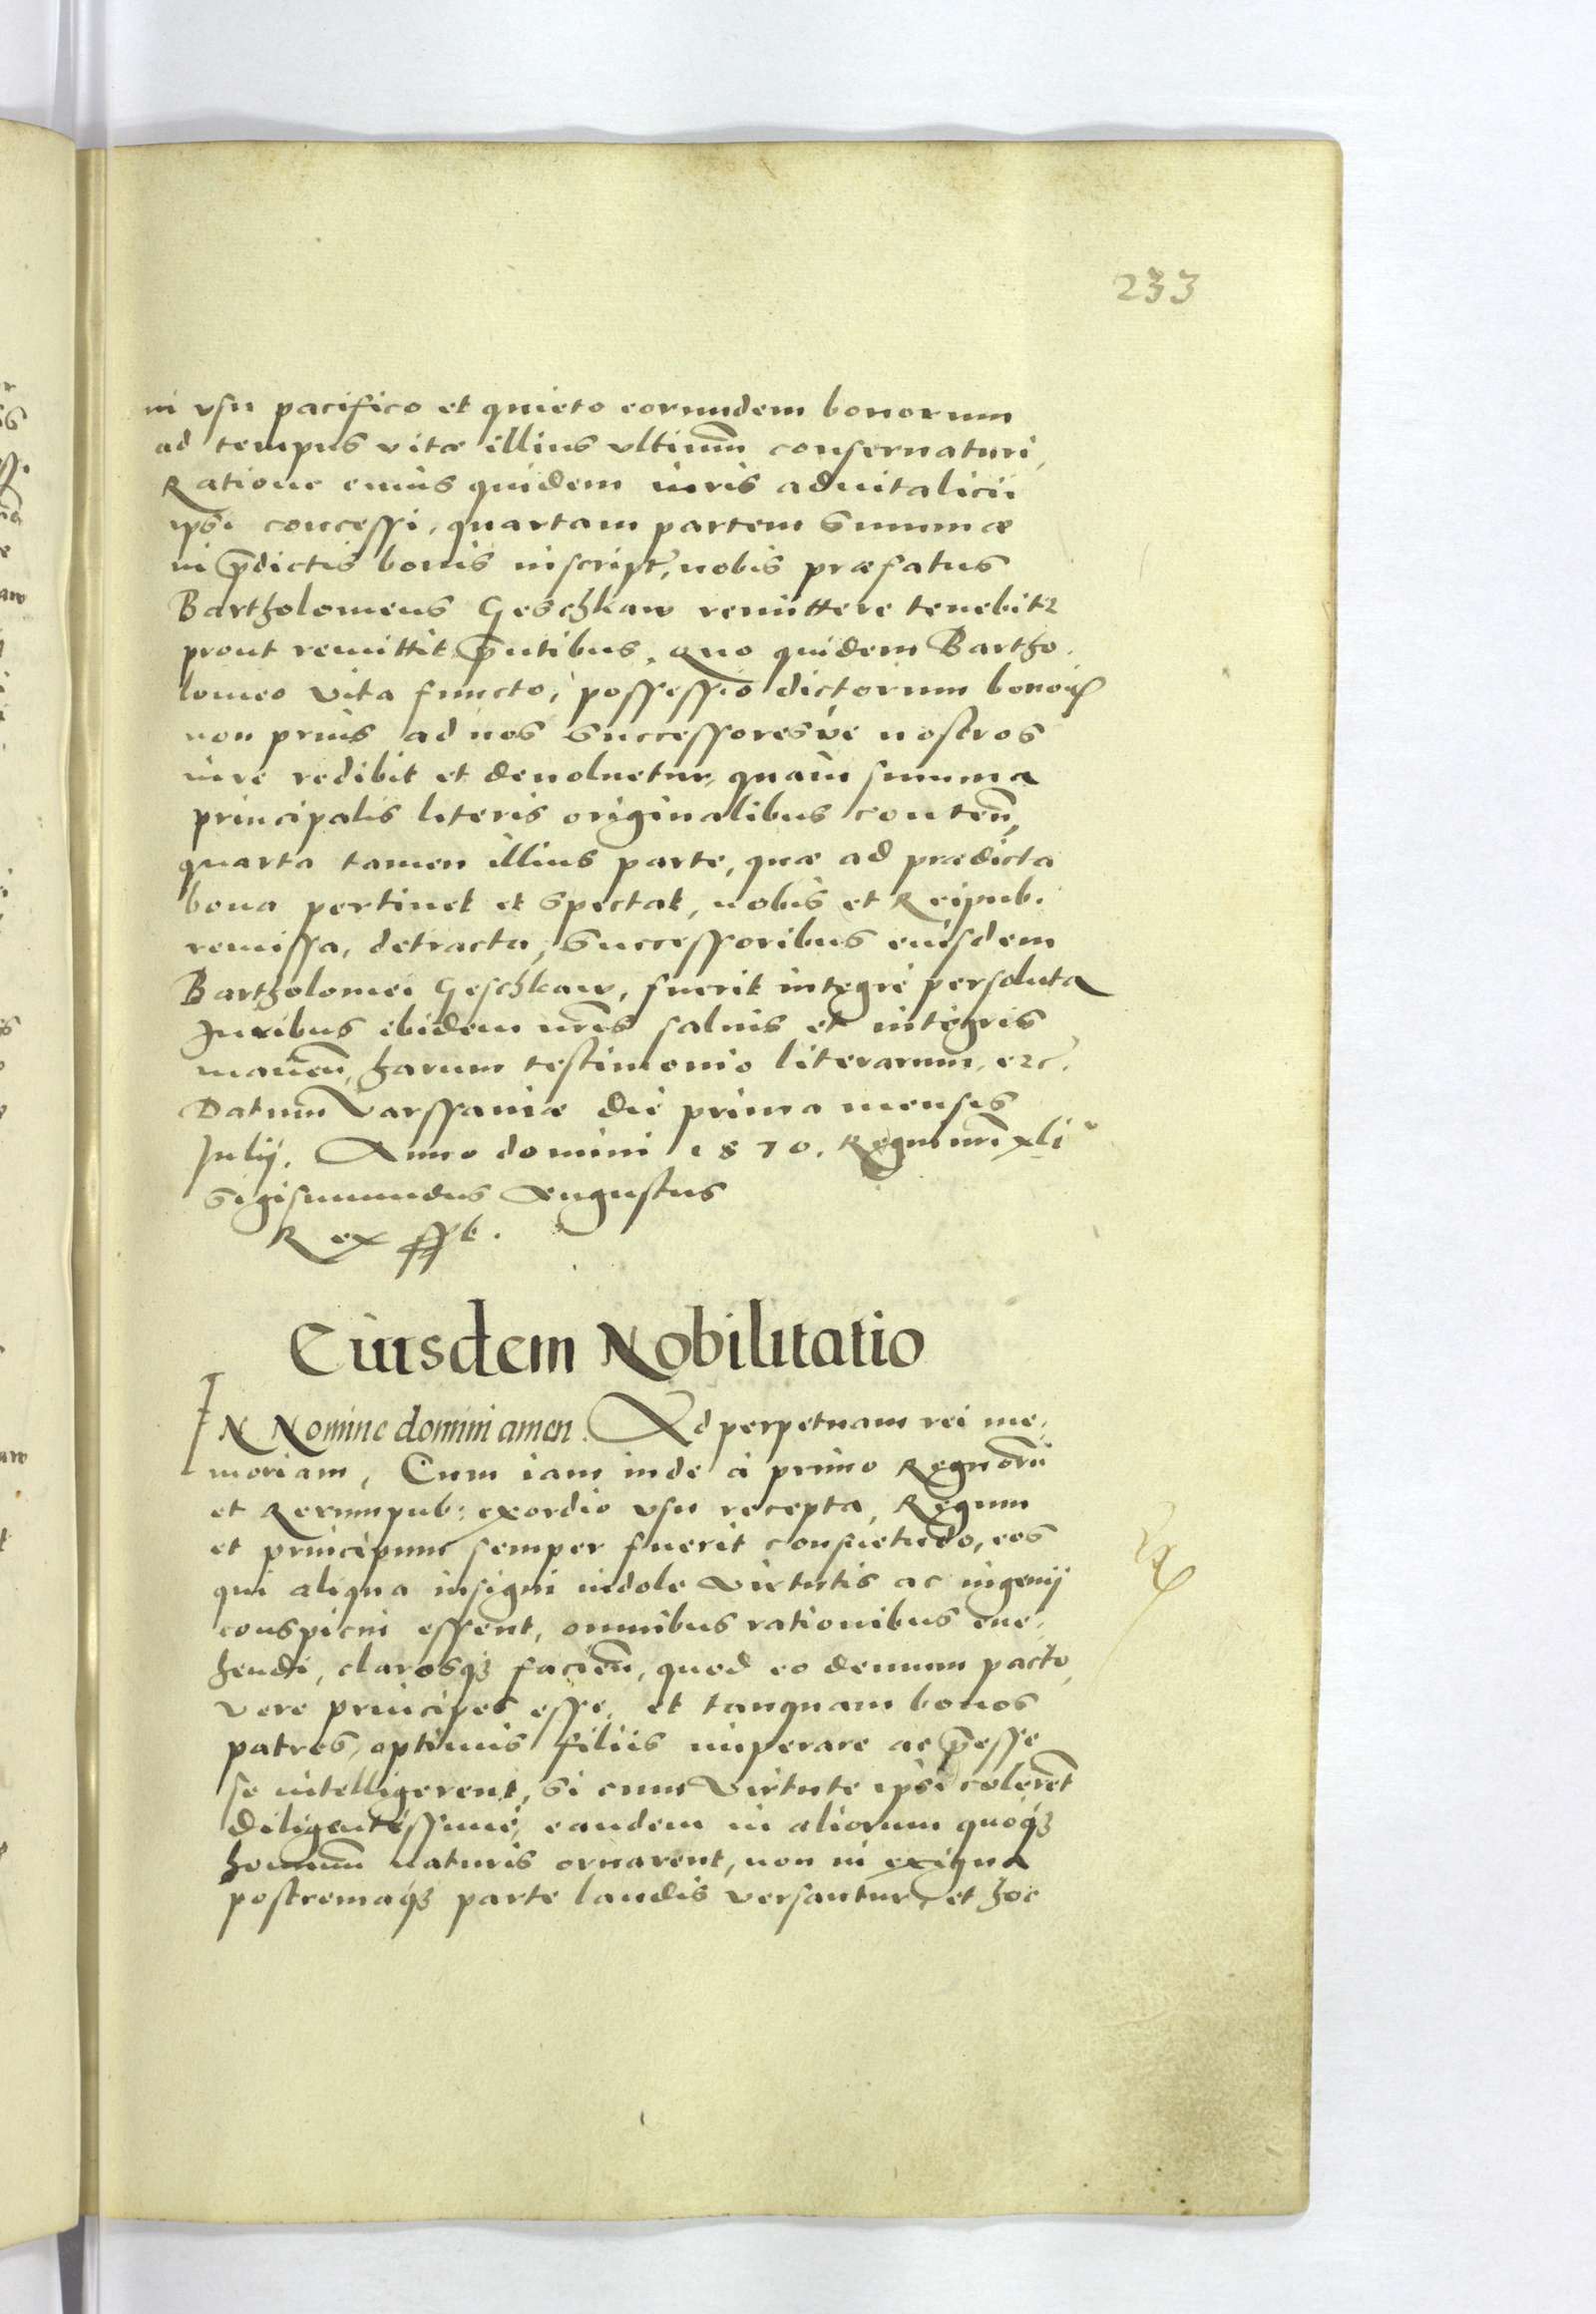 233
in vsu pacifico et quieto eorundem bonorum
ad tempus vitæ illius vltimum conseruaturi,
Ratione cuius quidem iuris aduitalicii
ipsi concessi, quartam partem summæ
in p̄dictis bonis inscript, nobis præfatus
Bartholomeus Geschkaw remittere tenebitr
prout remittit p̄ntibus. Quo quidem Bartho-
lomeo vita functo, possessio dictorum bonoꝝ
non prius ad nos successoresve nostros
iure redibit et deuoluetur, quàm summa
principalis literis originalibus conten̄,
quarta tamen illius parte, quæ ad prædicta
bona pertinet et spectat, nobis et Reipub.
remissa, detracta, successoribus eiusdem
Bartholomei Geschkaw, fuerit integrè persoluta
Iuribus ibidem nr̄is saluis et integris
manen̄, harum testimonio literarum. etc.
Datum Varssauiæ die prima mensis
Julij. Anno domini 1570. Regni nr̄i xli
Sigismundus Augustus
Rex sspt.
Eiusdem Nobilitatio
IN Nomine domini amen. Ad perpetuam rei me-
moriam, Cum iam inde à primo Regnorū
et Rerumpub: exordio vsu recepta, Regum
et principum semper fuerit consuetudo, eos
qui aliqua insigni indole virtutis ac ingenij
conspicui essent, omnibus rationibus eue-
hendi, clarosqꝫ facien̄, quod eo demum pacto
vere principes esse, et tanquam bonos
patres, optimis filiis imperare ac p̄esse
se intelligerent, si cum virtute ipsi coleren̄t
diligentissimè, eandem in aliorum quoqꝫ
hominum naturis ornarent, non in exigua
postremaqꝫ parte laudis versantur, et hoc